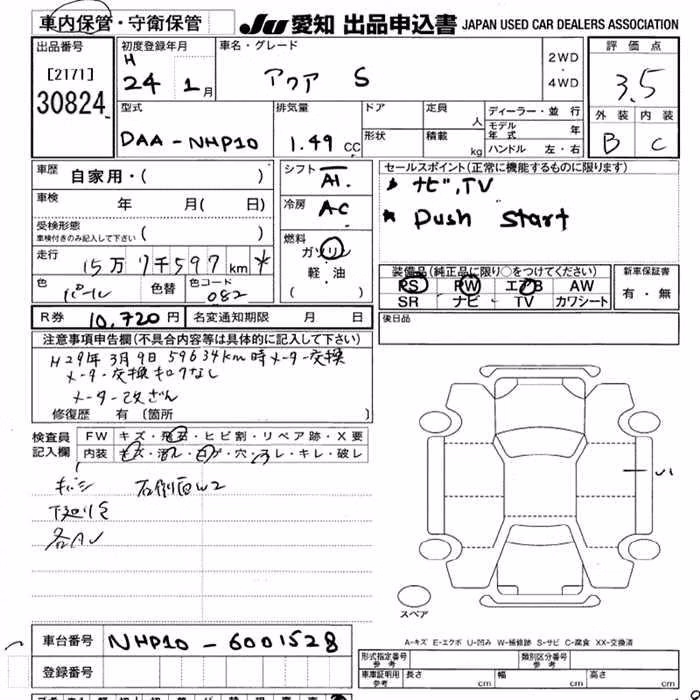 車内保管・守衛保管 JU 愛知 出品申込書 JAPAN USED CAR DEALERS ASSOCIATION
出品番号 初度登録年月 車名・グレード 2WD・4WD 評価点
[2171] H 24 1月 アクア S 3.5
30824
型式 排気量 ドア 定員 人 ディーラー・並行 外装 内装
DAA-NHP10 1.49 CC 形状 積載 kg モデル年式 年 B C
ハンドル 左・右
車歴 自家用・( ) シフト AT セールスポイント(正常に機能するものに限ります)
車検 年 月( 日) 冷房 AC ナビ,TV
受検形態 車検付きのみ記入して下さい ( ) Push Start
走行 15万7千597km * 燃料 ガソリン 軽・油 ( )
色 パール 色替 色コード 082
装備品(純正品に限り○をつけてください) 新車保証書
PS PW エアB AW 有・無
SR ナビ TV カワシート
R券 10,720円 名変通知期限 月 日 後日品
注意事項申告欄(不具合内容等は具体的に記入して下さい)
H29年3月9日 59634km時メーター交換
メーター交換キロクなし
メーター改ざん
修復歴 有 [箇所 ]
検査員記入欄 FW キズ・飛石・ヒビ割・リペア跡・X要
内装 キズ・汚レ・コゲ・穴・スレ・キレ・破レ
右側面W2
下廻り
各AU
スペア
A-キズ E-エクボ U-凹み W-補修跡 S-サビ C-腐食 XX-交換済
車台番号 NHP10-6001528
登録番号
形式指定番号 参考 類別区分番号 参考
車庫証明用 参考 長さ cm 幅 cm 高さ cm